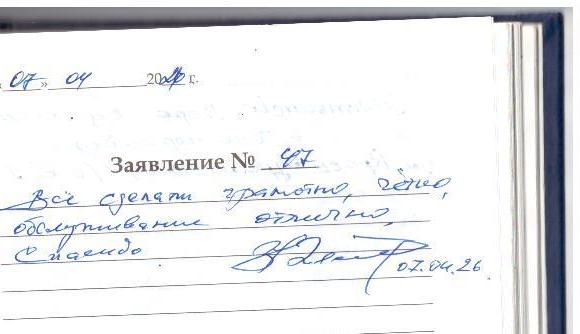 « 07 » 04 2026 г.
Заявление № 47
Всё сделали грамотно, чётко,
обслуживание отлично,
Спасибо
07.04.26